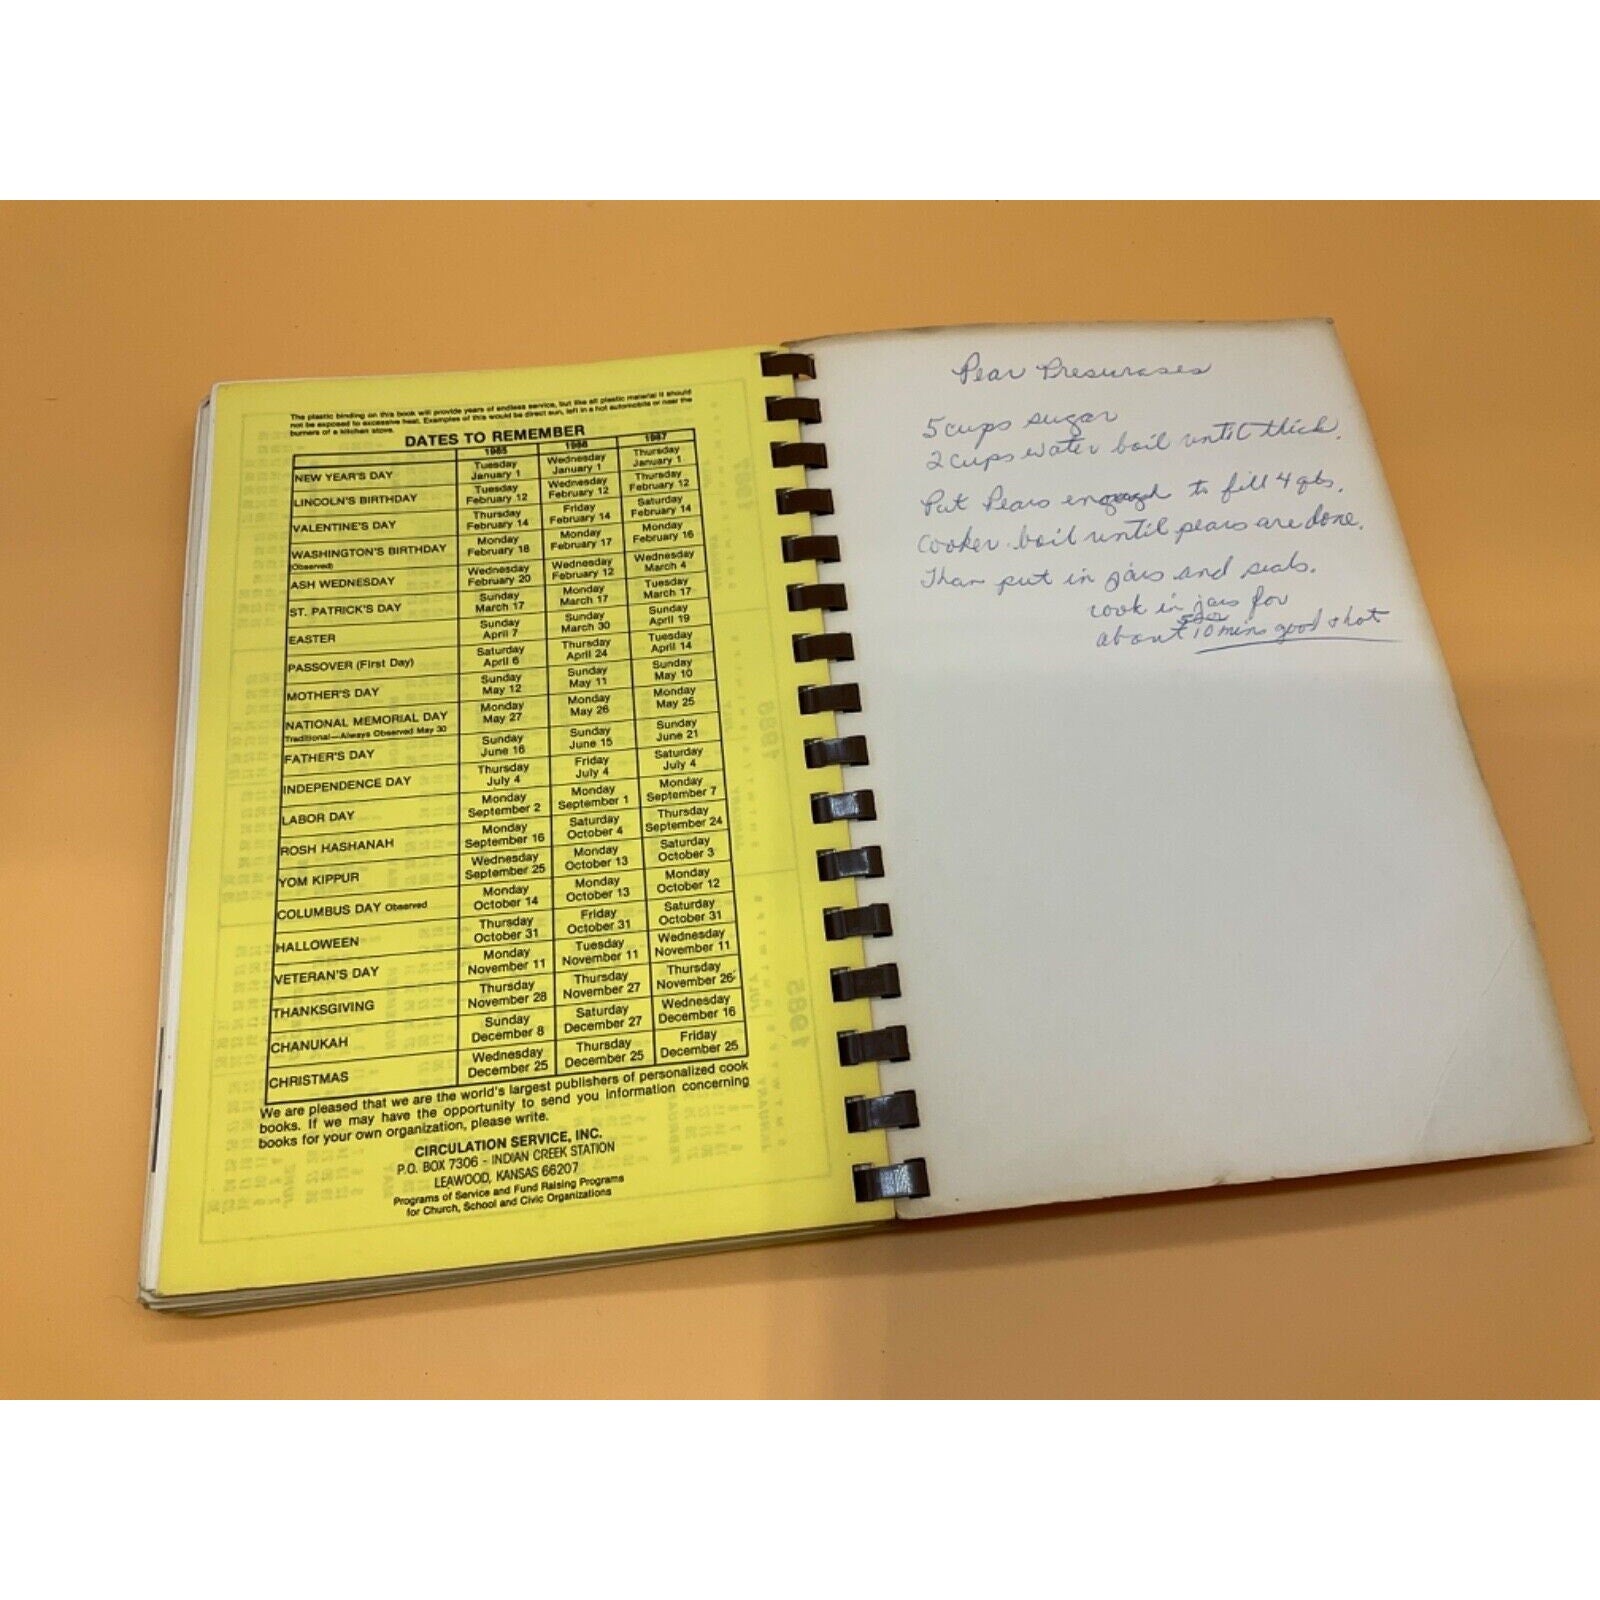 The plastic binding on this book will provide years of endless service, but like all plastic material it should
not be exposed to excessive heat. Examples of this would be direct sun, left in a hot automobile or near the
burners of a kitchen stove.
DATES TO REMEMBER
1985 1986 1987
NEW YEAR'S DAY Tuesday January 1 Wednesday January 1 Thursday January 1
LINCOLN'S BIRTHDAY Tuesday February 12 Wednesday February 12 Thursday February 12
VALENTINE'S DAY Thursday February 14 Friday February 14 Saturday February 14
WASHINGTON'S BIRTHDAY (Observed) Monday February 18 Monday February 17 Monday February 16
ASH WEDNESDAY Wednesday February 20 Wednesday February 12 Wednesday March 4
ST. PATRICK'S DAY Sunday March 17 Monday March 17 Tuesday March 17
EASTER Sunday April 7 Sunday March 30 Sunday April 19
PASSOVER (First Day) Saturday April 6 Thursday April 24 Tuesday April 14
MOTHER'S DAY Sunday May 12 Sunday May 11 Sunday May 10
NATIONAL MEMORIAL DAY Traditional—Always Observed May 30 Monday May 27 Monday May 26 Monday May 25
FATHER'S DAY Sunday June 16 Sunday June 15 Sunday June 21
INDEPENDENCE DAY Thursday July 4 Friday July 4 Saturday July 4
LABOR DAY Monday September 2 Monday September 1 Monday September 7
ROSH HASHANAH Monday September 16 Saturday October 4 Thursday September 24
YOM KIPPUR Wednesday September 25 Monday October 13 Saturday October 3
COLUMBUS DAY Observed Monday October 14 Monday October 13 Monday October 12
HALLOWEEN Thursday October 31 Friday October 31 Saturday October 31
VETERAN'S DAY Monday November 11 Tuesday November 11 Wednesday November 11
THANKSGIVING Thursday November 28 Thursday November 27 Thursday November 26
CHANUKAH Sunday December 8 Saturday December 27 Wednesday December 16
CHRISTMAS Wednesday December 25 Thursday December 25 Friday December 25
We are pleased that we are the world's largest publishers of personalized cook
books. If we may have the opportunity to send you information concerning
books for your own organization, please write.
CIRCULATION SERVICE, INC.
P.O. BOX 7306 - INDIAN CREEK STATION
LEAWOOD, KANSAS 66207
Programs of Service and Fund Raising Programs
for Church, School and Civic Organizations
Pear
5 cups sugar
2 cups water boil until thick.
Put Pears enough to fill 4 qts.
Cooker boil until pears are done.
Than put in jars and seals.
cook in jars for
about 5 or 10 mins good & hot